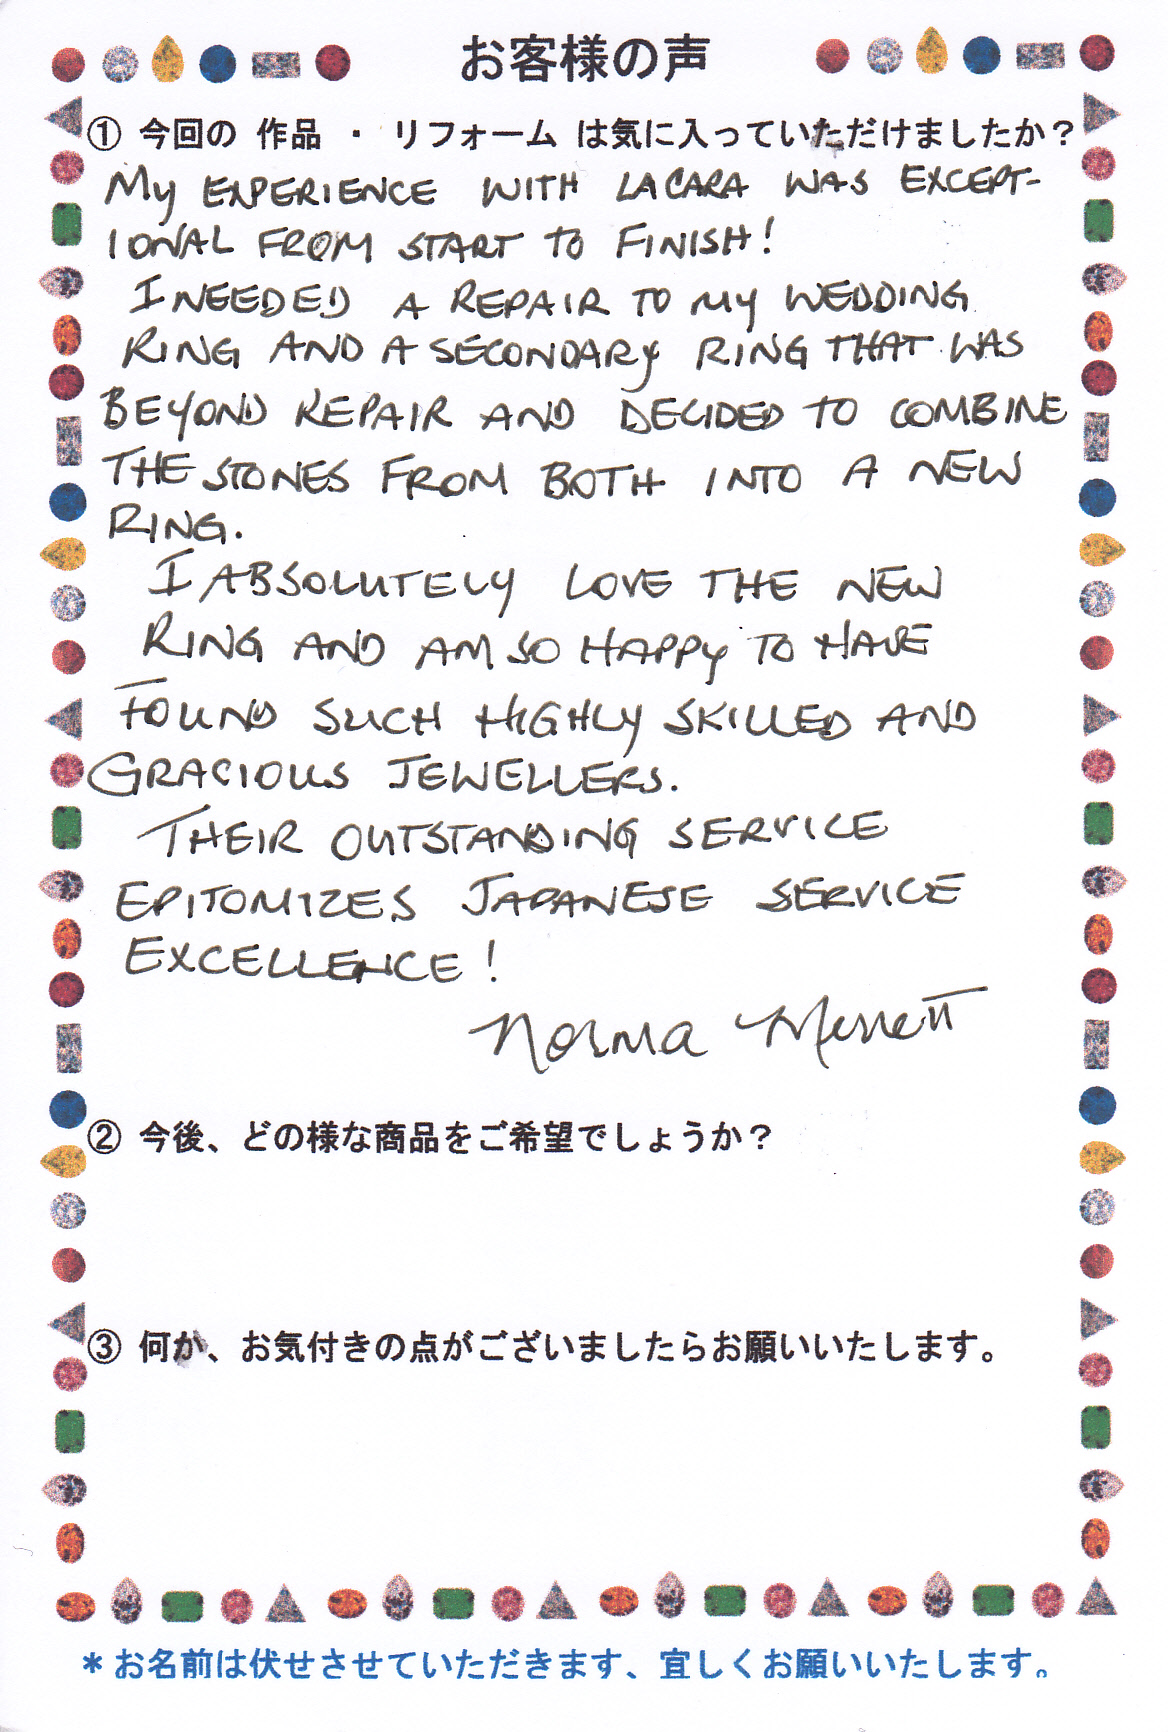 お客様の声
① 今回の 作品 ・ リフォーム は気に入っていただけましたか？
MY EXPERIENCE WITH LACARA WAS EXCEPT-
IONAL FROM START TO FINISH!
I NEEDED A REPAIR TO MY WEDDING
RING AND A SECONDARY RING THAT WAS
BEYOND REPAIR AND DECIDED TO COMBINE
THE STONES FROM BOTH INTO A NEW
RING.
I ABSOLUTELY LOVE THE NEW
RING AND AM SO HAPPY TO HAVE
FOUND SUCH HIGHLY SKILLED AND
GRACIOUS JEWELLERS.
THEIR OUTSTANDING SERVICE
EPITOMIZES JAPANESE SERVICE
EXCELLENCE!
Norma
② 今後、どの様な商品をご希望でしょうか？
③ 何か、お気付きの点がございましたらお願いいたします。
＊お名前は伏せさせていただきます、宜しくお願いいたします。